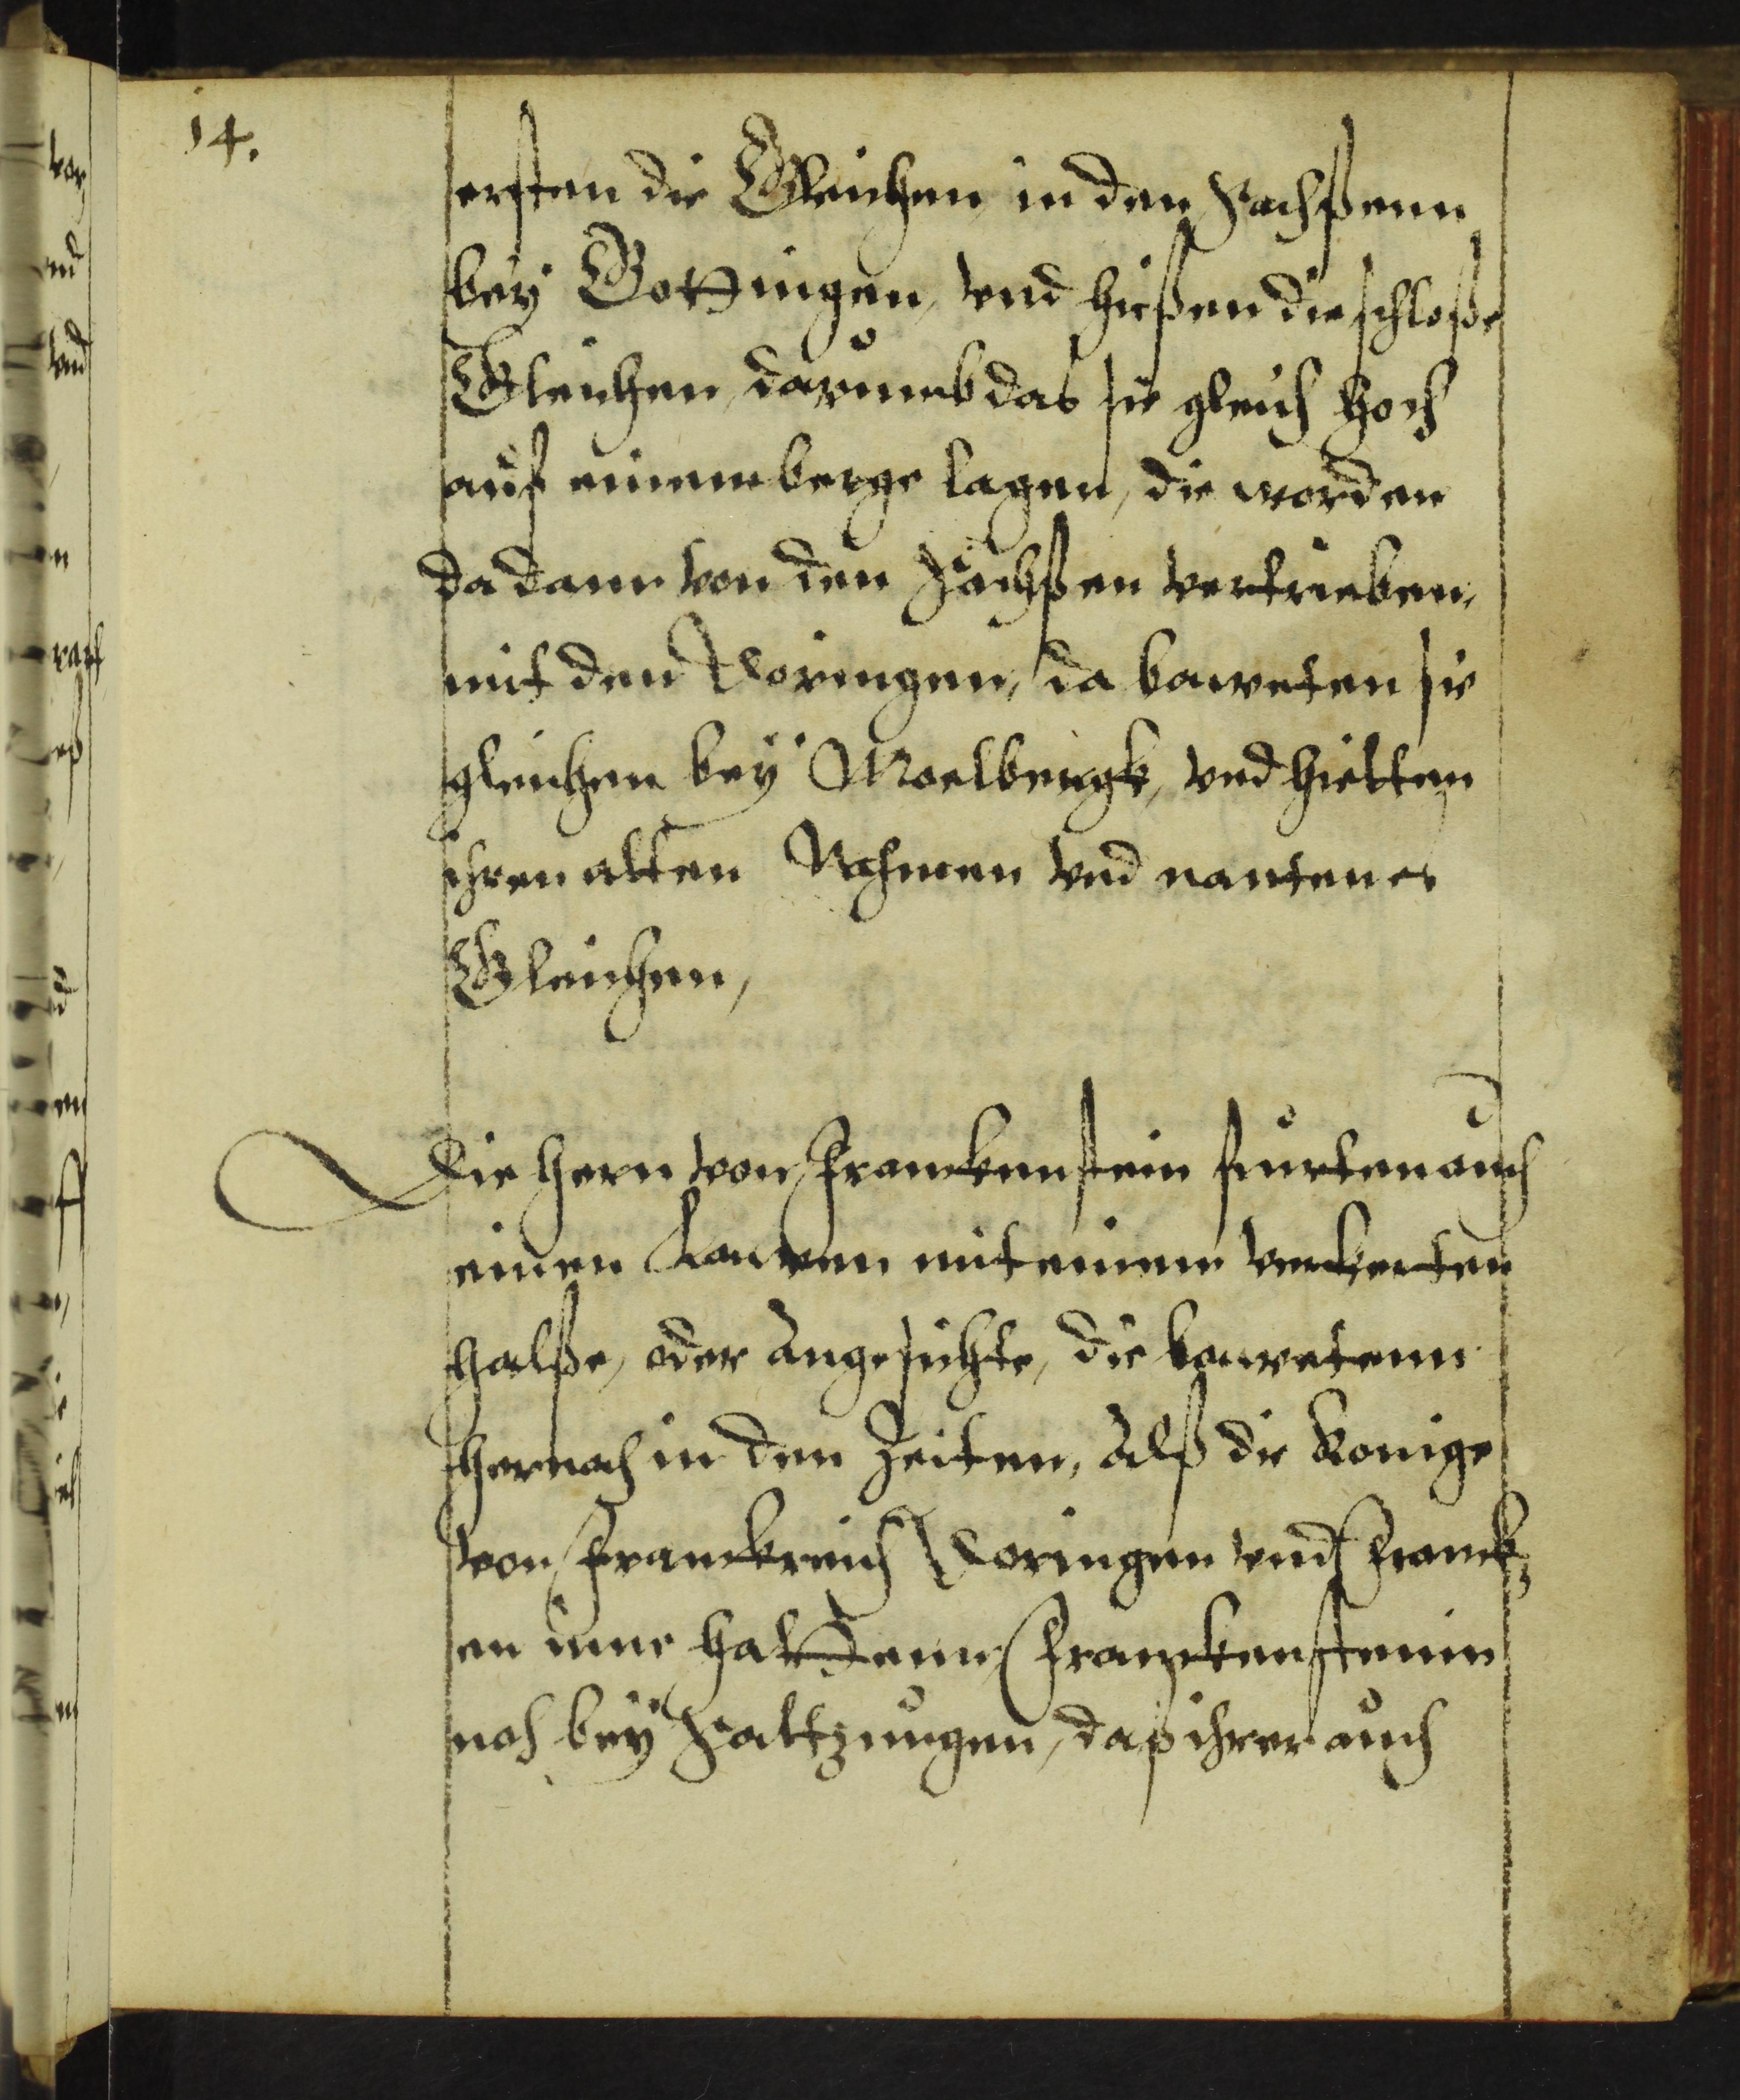 14.
ersten die Gleichen in den Sachßenn
beÿ Gottingen, vnd hießen die schloße
Gleichen, darumb das sie gleich hoch
auf einem berge lagen, die worden
da dann von den Sachßen vertrieben,
mit den Doringen, da baweten sie
gleichen beÿ Moelbergk, vnd hielten
ihren alten Nahmen vnd nanten es
Gleichen,
Die Hern von Franckenstein furten auch
einen Lauwen mit einem verkerten
halße, oder Angesichte, die bauwetenn
hernach in den Zeiten, Alß die Konige
von Franckreich Doringen vnd Franck¬
en inne hattenn, Franckensteinn
noh beÿ Saltzungen, daß ihrer auch